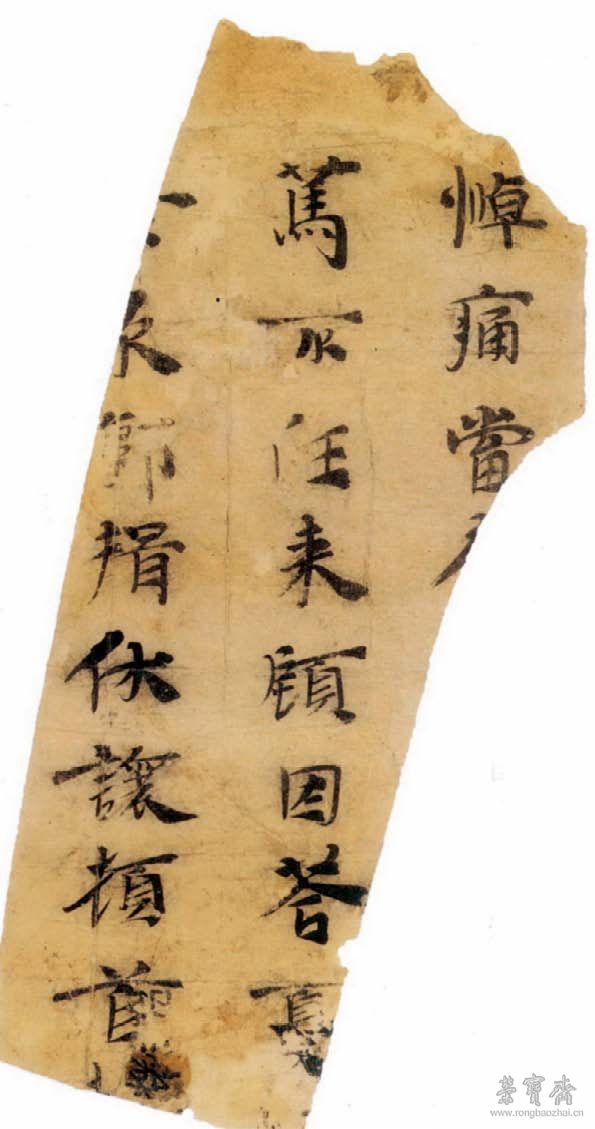 悼痛當
篤不任来顧因荅
永節揖伏讓頓首
荣寶齋
www.rongbaozhai.cn